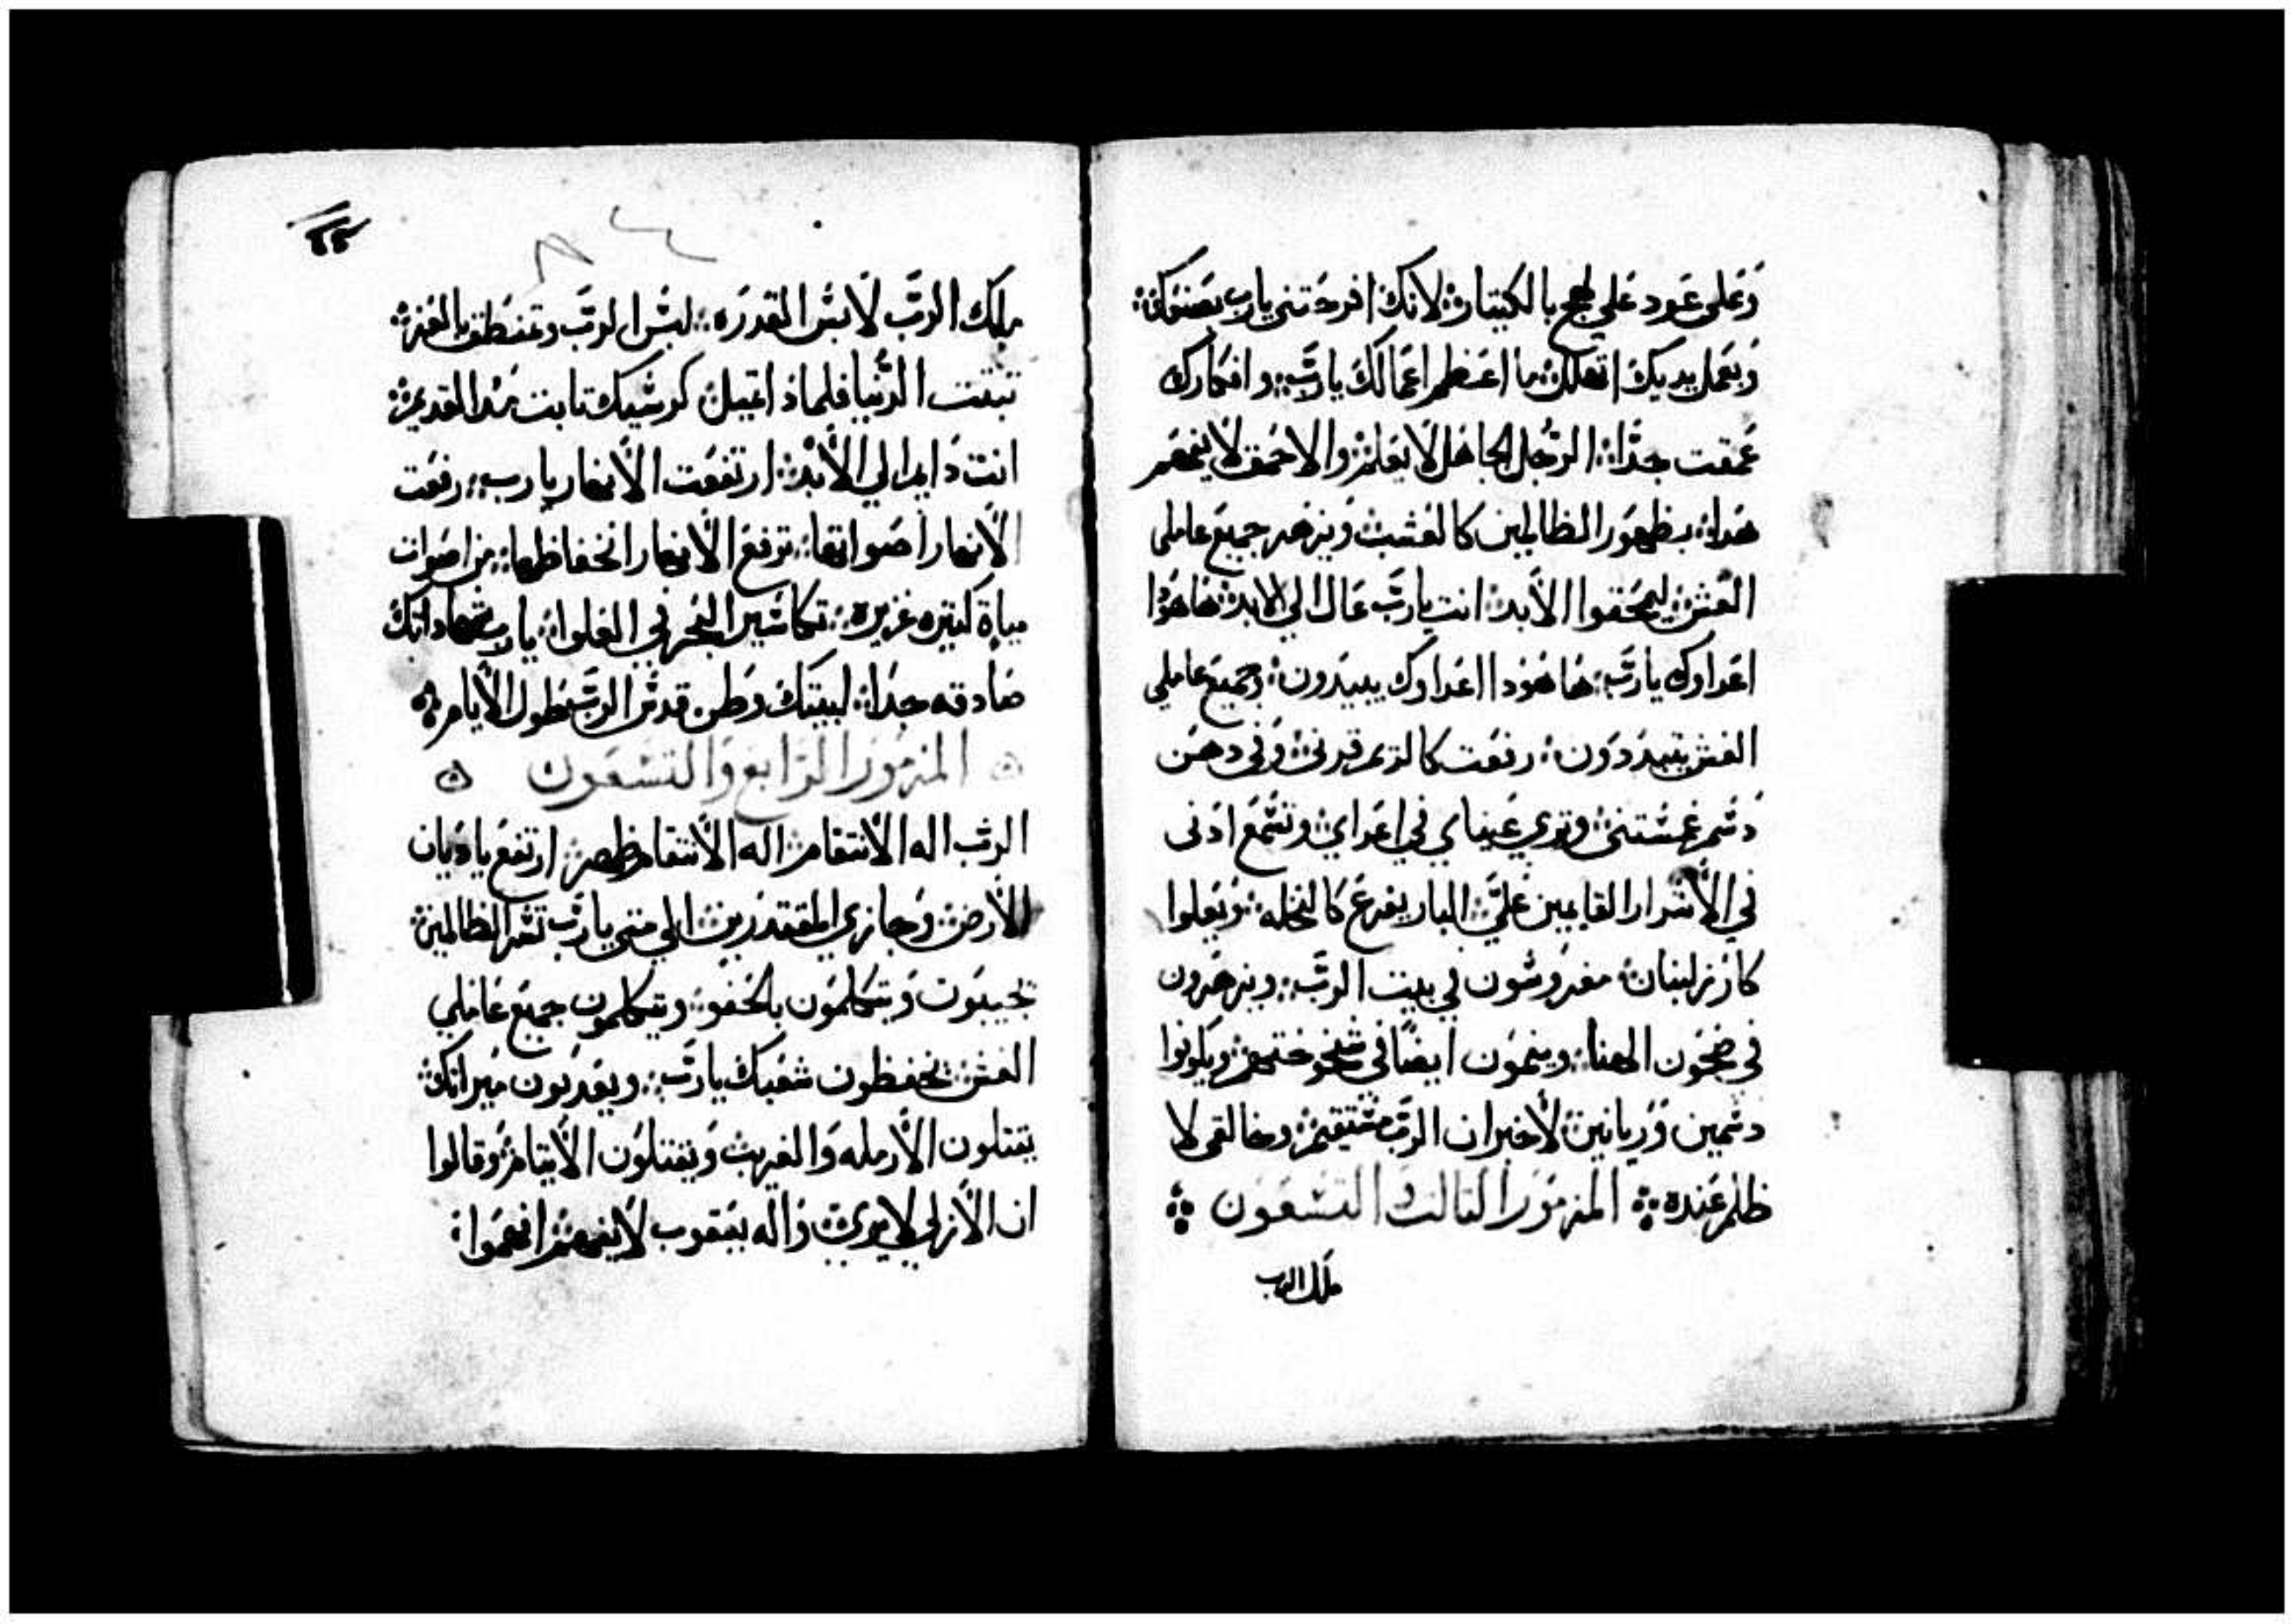 وَعلى عَود عَلي لهج بالكيتار؞ لانك افرحَتني يارب بصَنوَك؞
وَبعَمل يديك اتهلل؞ ما اعَظم اعَمالَك يارَبّ؞ وافكارك
عَمقت جدَّا؞ الرَجُل الجاهَل لا يَعَلم؞ والاحمَق لا يفهَم
هَدا؞ بظهوَر الظالمين كالعَشب؞ وَيزهر جميعَ عاملى
الغَش؞ ليمحَقوا الاَبد؞ انت يارَبّ عَال الي الابد؞ هَاهوُدا
اعَداوك يارَبّ؞ هَا هَوُدا اعَداوك يبيَدون؞ وَجميعَ عاملي
الغش يتبدَدوَن؞ رفعَت كالريم قرنى؞ وَفي دهَن
دَسَم غمسَتنى؞ وترى عَيناي في اعَداي؞ وتسَمَع ادَنى
في الاَشرار القايمين عَليَّ؞ البار يفرعَ كَالنخله؞ وَيعَلوا
كارَز لبنان؞ مغرَوسَون في بيت الربَّ؞ ويزهَرون
في ضحَوَن الهنا؞ وينموَن ايضًا في شيخوختهم؞ وَيكونوا
دسَمين وَريانين؞ لاخبر ان الربّ مسَتقيم؞ وخالقى لا
ظلم عَنده؞ المزمَوَر التالت وَالتسَعَون ؞
ملَك الرب
ملَك الربّ لاَبسَ القدرَه؞ لبسَ الربّ وتمنَطق بالعَز؞
تبَتت الدُنيا فلماذ اتميل؞ كرسَيك تابت مَند القديم؞
انت دَايما الي الاَبد؞ ارتفعَت الاَنهار يارب؞ رفعَت
الاَنهار اصَواتها؞ ترفعَ الاَنهار انخفاظها؞ من اصَوات
مياة كتيره غزيره؞ تكاسَير البَحر في العَلوا؞ يارب شهاداتك
صَادقه جدَا؞ لبيتك وَطن قدسَ الربّ بطول الاَيام؞
المزمُوَر الرَابع وَالتسَعَون
الربّ اله الاَنتقام؞ اله الاَنتقام ظهر؞ ارتفعَ يادَيان
الاَرض؞ وَجازي المقتدرين؞ الي متى يارَبّ تسَر الظالمين؞
يَجيبوَن وَيتكَلموَن بالجَفو؞ ويتكلمون جميعَ عَاملي
الغش؞ يحفظون شعَبك يارَبّ؞ ويعَدبون ميراتك؞
يقتلون الاَرمله وَالغريب؞ وَيقتلوَن الاَيتام؞ وَقالوا
ان الاَزلي لا يري؞ وَاله يعَقوب لاَ يفهَم؞ افهَموَا؞